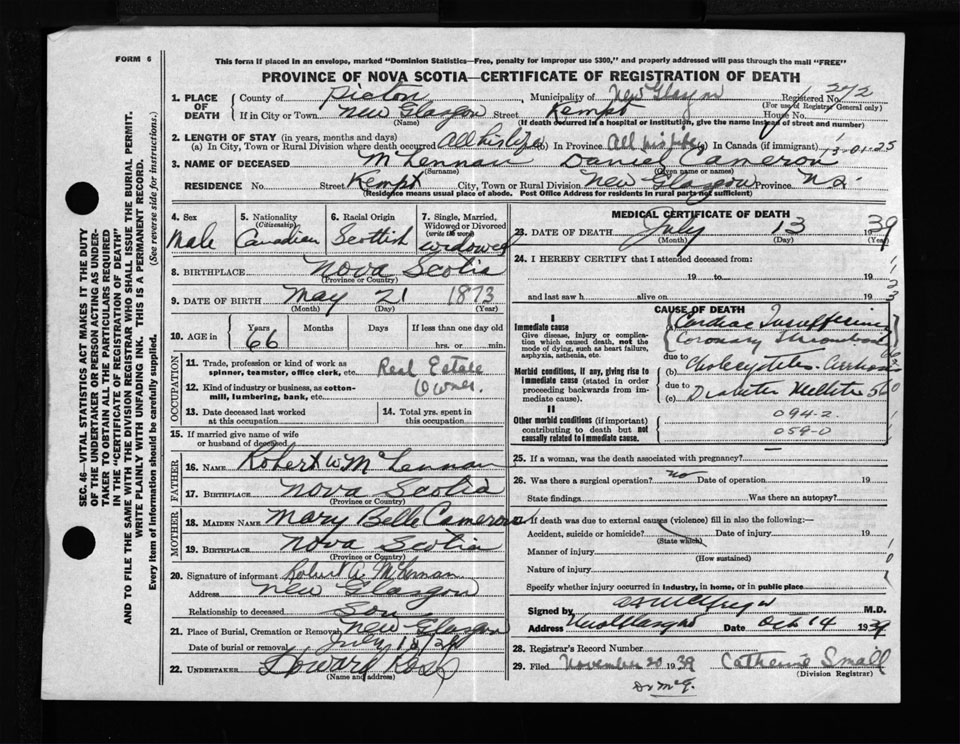 FORM 6
This form if placed in an envelope, marked "Dominion Statistics—Free, penalty for improper use $300," and properly addressed will pass through the mail "FREE"
PROVINCE OF NOVA SCOTIA—CERTIFICATE OF REGISTRATION OF DEATH
SEC. 46—VITAL STATISTICS ACT MAKES IT THE DUTY
OF THE UNDERTAKER OR PERSON ACTING AS UNDER-
TAKER TO OBTAIN ALL THE PARTICULARS REQUIRED
IN THE "CERTIFICATE OF REGISTRATION OF DEATH"
AND TO FILE THE SAME WITH THE DIVISION REGISTRAR WHO SHALL ISSUE THE BURIAL PERMIT.
WRITE PLAINLY WITH UNFADING INK. THIS IS A PERMANENT RECORD.
Every item of information should be carefully supplied. (See reverse side for instructions.)
1. PLACE OF DEATH County of Pictou Municipality of New Glasgow Registered No. 272
(For use of Registrar General only)
If in City or Town New Glasgow Street Kempt House No.
(Name) (If death occurred in a hospital or institution, give the name instead of street and number)
2. LENGTH OF STAY (in years, months and days)
(a) In City, Town or Rural Division where death occurred All his life (b) In Province All his life (c) In Canada (if immigrant)
13-01-25
3. NAME OF DECEASED McLennan Daniel Cameron
(Surname) (Given name or names)
RESIDENCE No. Street Kempt City, Town or Rural Division New Glasgow Province N.S.
(Residence means usual place of abode. Post Office Address for residents in rural parts not sufficient)
4. Sex 5. Nationality (Citizenship) 6. Racial Origin 7. Single, Married, Widowed or Divorced (write the word)
Male Canadian Scottish widowed
8. BIRTHPLACE Nova Scotia
(Province or Country)
9. DATE OF BIRTH May 21 1873
(Month) (Day) (Year)
10. AGE in Years Months Days If less than one day old
66 hrs. or min.
OCCUPATION
11. Trade, profession or kind of work as spinner, teamster, office clerk, etc. Real Estate
12. Kind of industry or business, as cotton-mill, lumbering, bank, etc. Owner
13. Date deceased last worked at this occupation 14. Total yrs. spent in this occupation
15. If married give name of wife or husband of deceased
FATHER
16. NAME Robert W McLennan
17. BIRTHPLACE Nova Scotia
(Province or Country)
MOTHER
18. MAIDEN NAME Mary Belle Cameron
19. BIRTHPLACE Nova Scotia
(Province or Country)
20. Signature of informant Robert A. McLennan
Address New Glasgow
Relationship to deceased Son
21. Place of Burial, Cremation or Removal New Glasgow
Date of burial or removal July
22. UNDERTAKER Howard Ross
(Name and address)
MEDICAL CERTIFICATE OF DEATH
23. DATE OF DEATH July 13 1939
(Month) (Day) (Year)
24. I HEREBY CERTIFY that I attended deceased from:
19 to 19
and last saw h alive on 19
CAUSE OF DEATH
I
Immediate cause Cardiac Insufficiency
Give disease, injury or complication which caused death, not the mode of dying, such as heart failure, asphyxia, asthenia, etc. Coronary Thrombosis
due to
Morbid conditions, if any, giving rise to immediate cause (stated in order proceeding backwards from immediate cause). (b)
due to
(c) Diabetes Mellitus
II
Other morbid conditions (if important) contributing to death but not causally related to immediate cause. 094-2
059-0
25. If a woman, was the death associated with pregnancy?
26. Was there a surgical operation? no Date of operation 19
State findings Was there an autopsy?
27. If death was due to external causes (violence) fill in also the following:—
Accident, suicide or homicide? Date of injury 19
(State which)
Manner of injury
(How sustained)
Nature of injury
Specify whether injury occurred in industry, in home, or in public place
Signed by M.D.
Address New Glasgow Date Oct 14 1939
28. Registrar's Record Number
29. Filed November 20 1939 Catherine Small
(Division Registrar)
Dr McG.